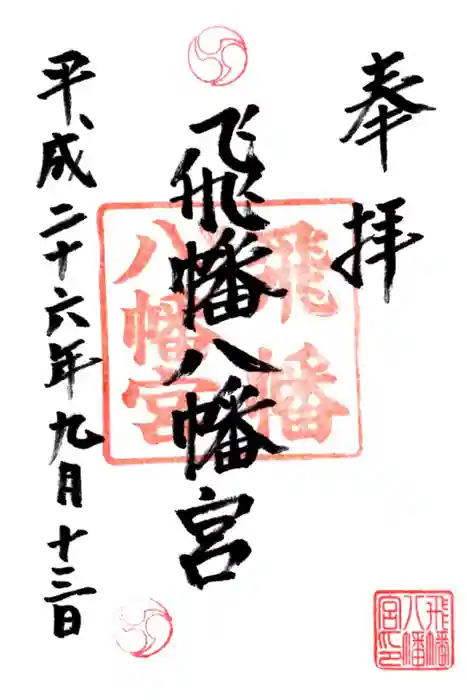 奉拝
飛幡八幡宮
飛幡
八幡宮
平成二十六年九月十三日
飛幡
八幡
宮印